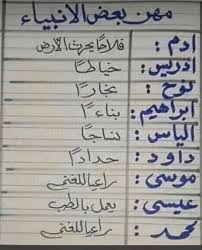 مهن بعض الأنبياء
ادم : فلاحًا يحرث الأرض
ادريس : خياطًا
نوح : نجارًا
ابراهيم : بناءً
الياس : نساجًا
داود : حدادًا
موسى : راعيا للغنم
عيسى : يعمل بالطب
محمد : راعيا للغنم